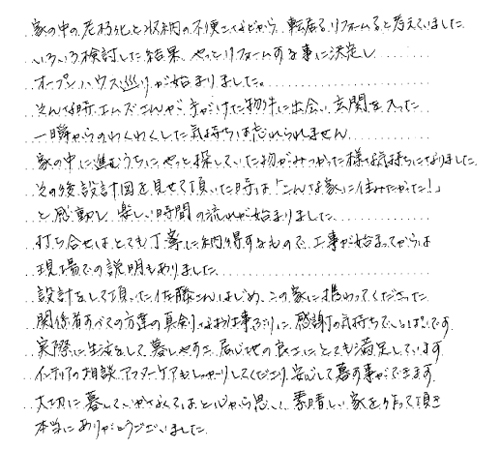 家の中の老朽化と収納の不便さなどから、転居、リフォームと考えていました
いろいろ検討した結果、やっとリフォームする事に決定し
オープンハウス巡りが始まりました。
そんな時、エムズさんが手がけた物件に出会い、玄関を入った
一瞬からのわくわくした気持ちは忘れられません
家の中に進むうちに、やっと探していた物がみつかった様な気持ちになりました
その後、設計図を見せて頂いた時は「こんな家に住みたかった！」
と感動し、楽しい時間の流れが始まりました
打ち合せはとても丁寧に納得するもので、工事が始まってからは
現場での説明もありました
設計をして頂いた佐藤さんはじめ、この家に携わってくださった
関係者すべての方達の真剣なお仕事ぶりに、感謝の気持ちでいっぱいです
実際に生活をして、暮しやすさ、居心地の良さにとても満足しています
インテリアの相談、アフターケアもしっかりしてくださり、安心して暮す事ができます
大切に暮していかなくてはと心から思い、素晴しい家を作って頂き
本当にありがとうございました